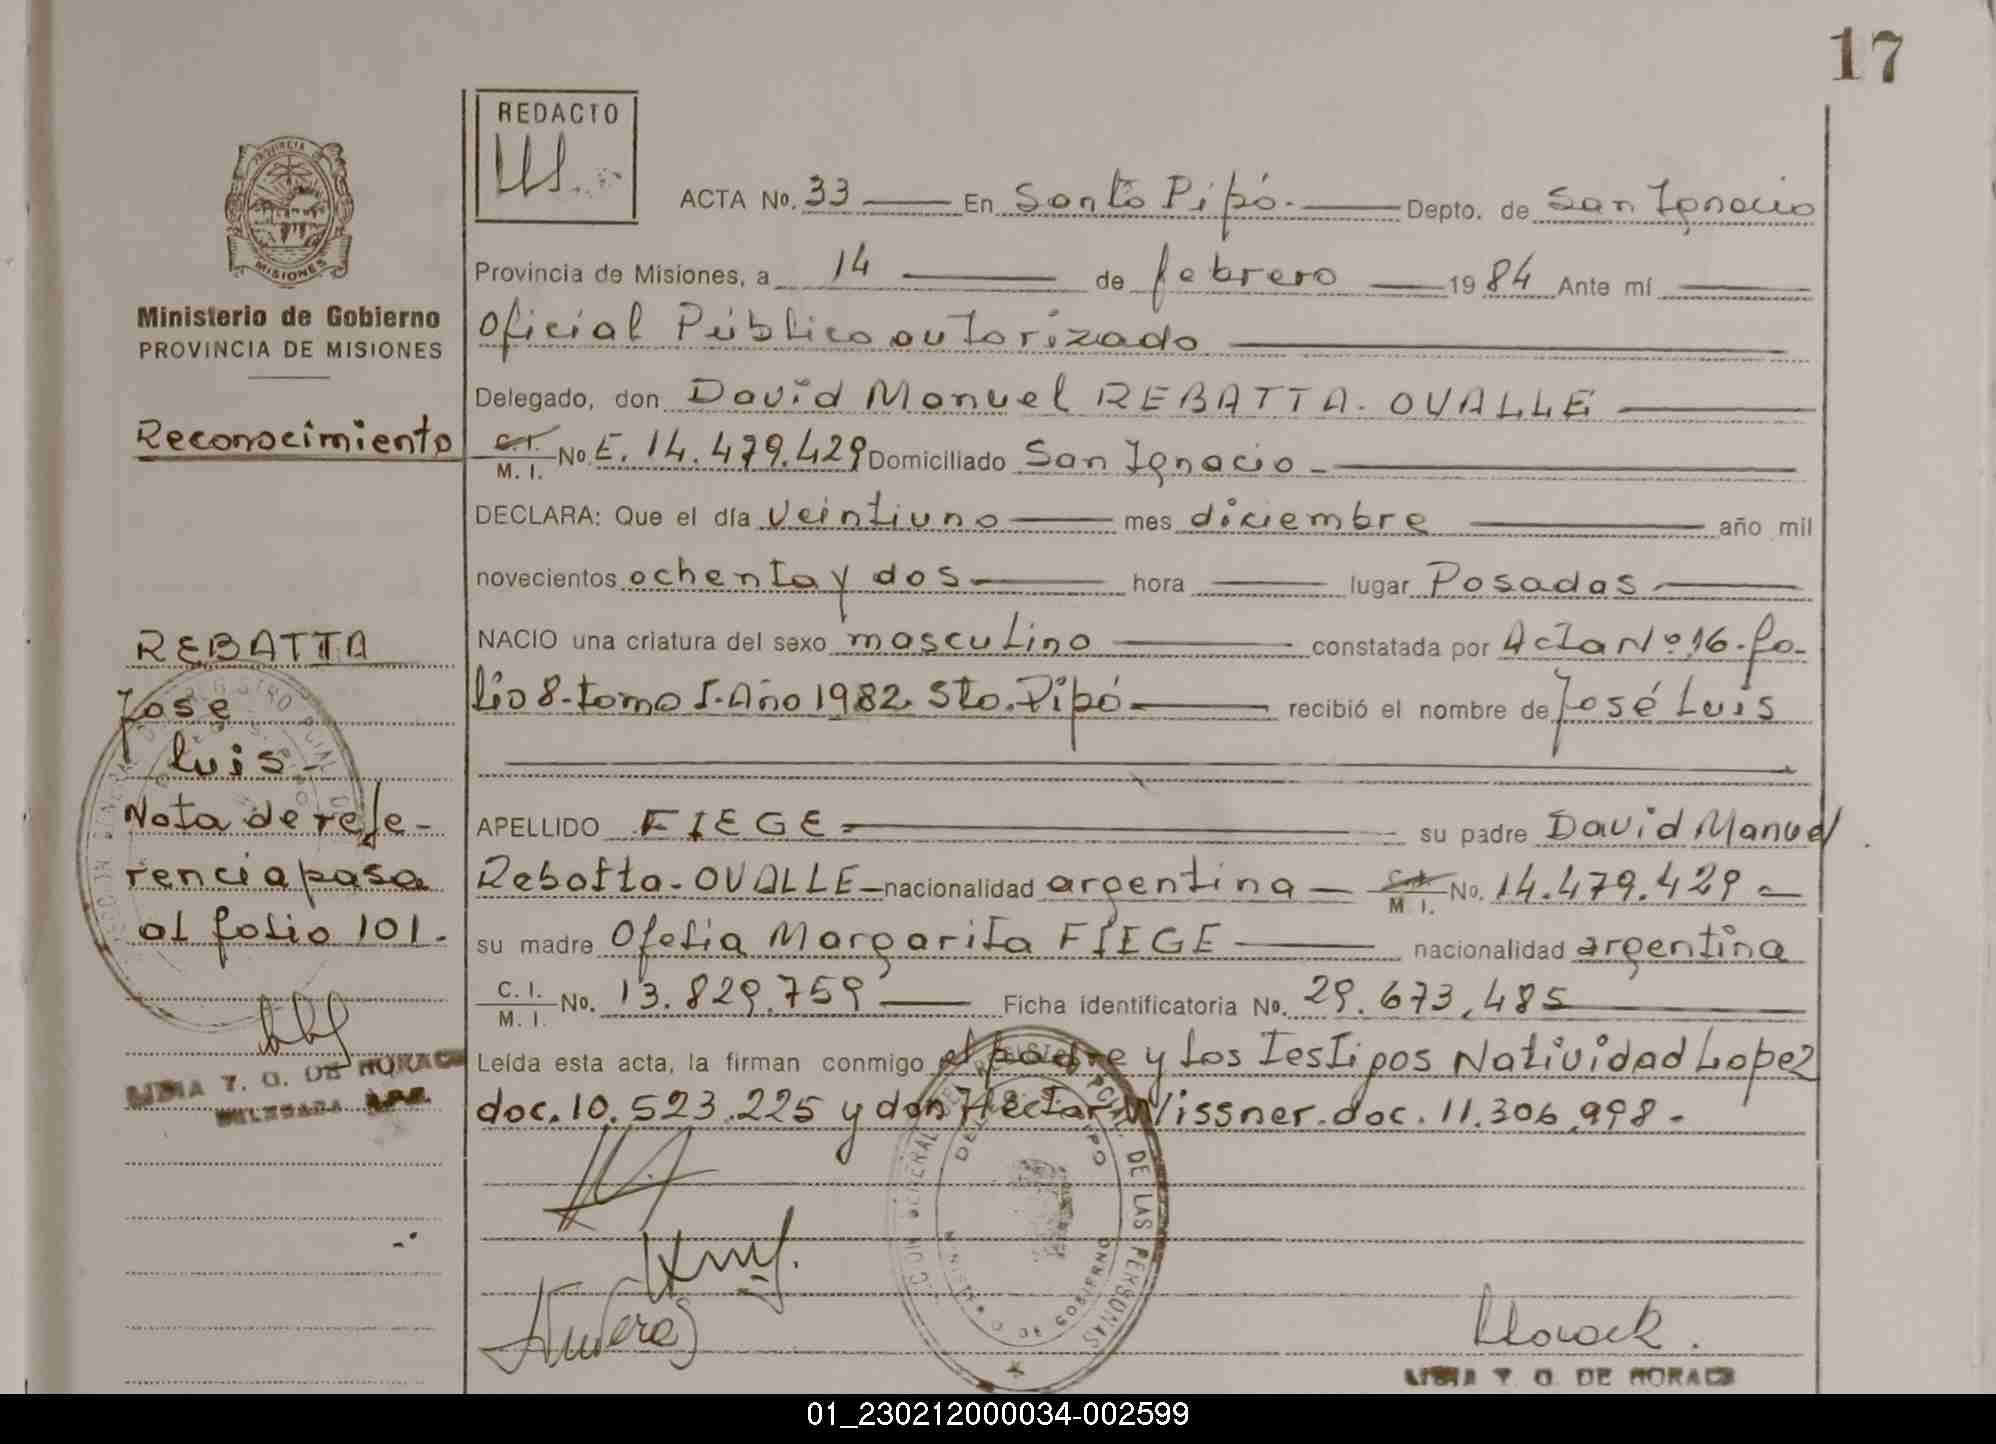 17
REDACTO
PROVINCIA
MISIONES
Ministerio de Gobierno
PROVINCIA DE MISIONES
ACTA No. 33 En Santo Pipó. Depto. de San Ignacio
Provincia de Misiones, a 14 de febrero 1984 Ante mí
Oficial Público autorizado
Delegado, don David Manuel REBATTA. OVALLE
Reconocimiento
C.I. M. I. No E. 14.479.429 Domiciliado San Ignacio -
DECLARA: Que el día veintiuno mes diciembre año mil
novecientos ochenta y dos hora lugar Posadas
NACIO una criatura del sexo masculino constatada por Acta Nº 16. fo-
lio 8-tomo I. Año 1982. Sto. Pipó recibió el nombre de José Luis
APELLIDO FIEGE su padre David Manuel
Rebatta-OVALLE nacionalidad argentina C.I. M I. No. 14.479.429
su madre Ofelia Margarita FIEGE nacionalidad argentina
C. I. M. I. No. 13.829.759 Ficha identificatoria No. 29.673,485
Leída esta acta, la firman conmigo el padre y los testigos Natividad Lopez
doc. 10.523.225 y don Hector Wissner. doc. 11.306.998-
REBATTA
José
Luis-
Nota de refe-
rencia pasa
al folio 101.
LIDIA T. O. DE HORACK
DELEGADA
DE LAS PERSONAS
GOBIERNO
LIDIA T. O. DE HORACK
01_230212000034-002599